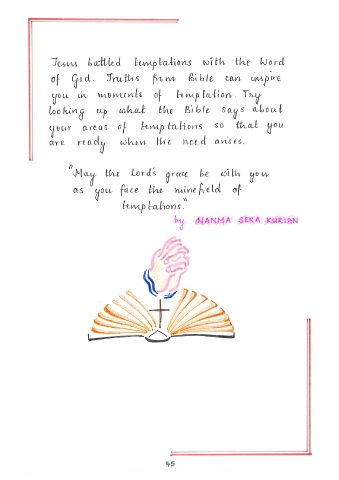 Jesus battled temptations with the Word
of God. Truths from Bible can inspire
you in moments of temptation. Try
looking up what the Bible says about
your areas of temptations so that you
are ready when the need arises.
"May the Lord's grace be with you
as you face the minefield of
temptations."
by NANMA SERA KURIAN
45